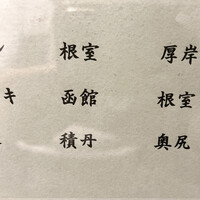 根室 厚岸
キ 函館 根室
積丹 奥尻